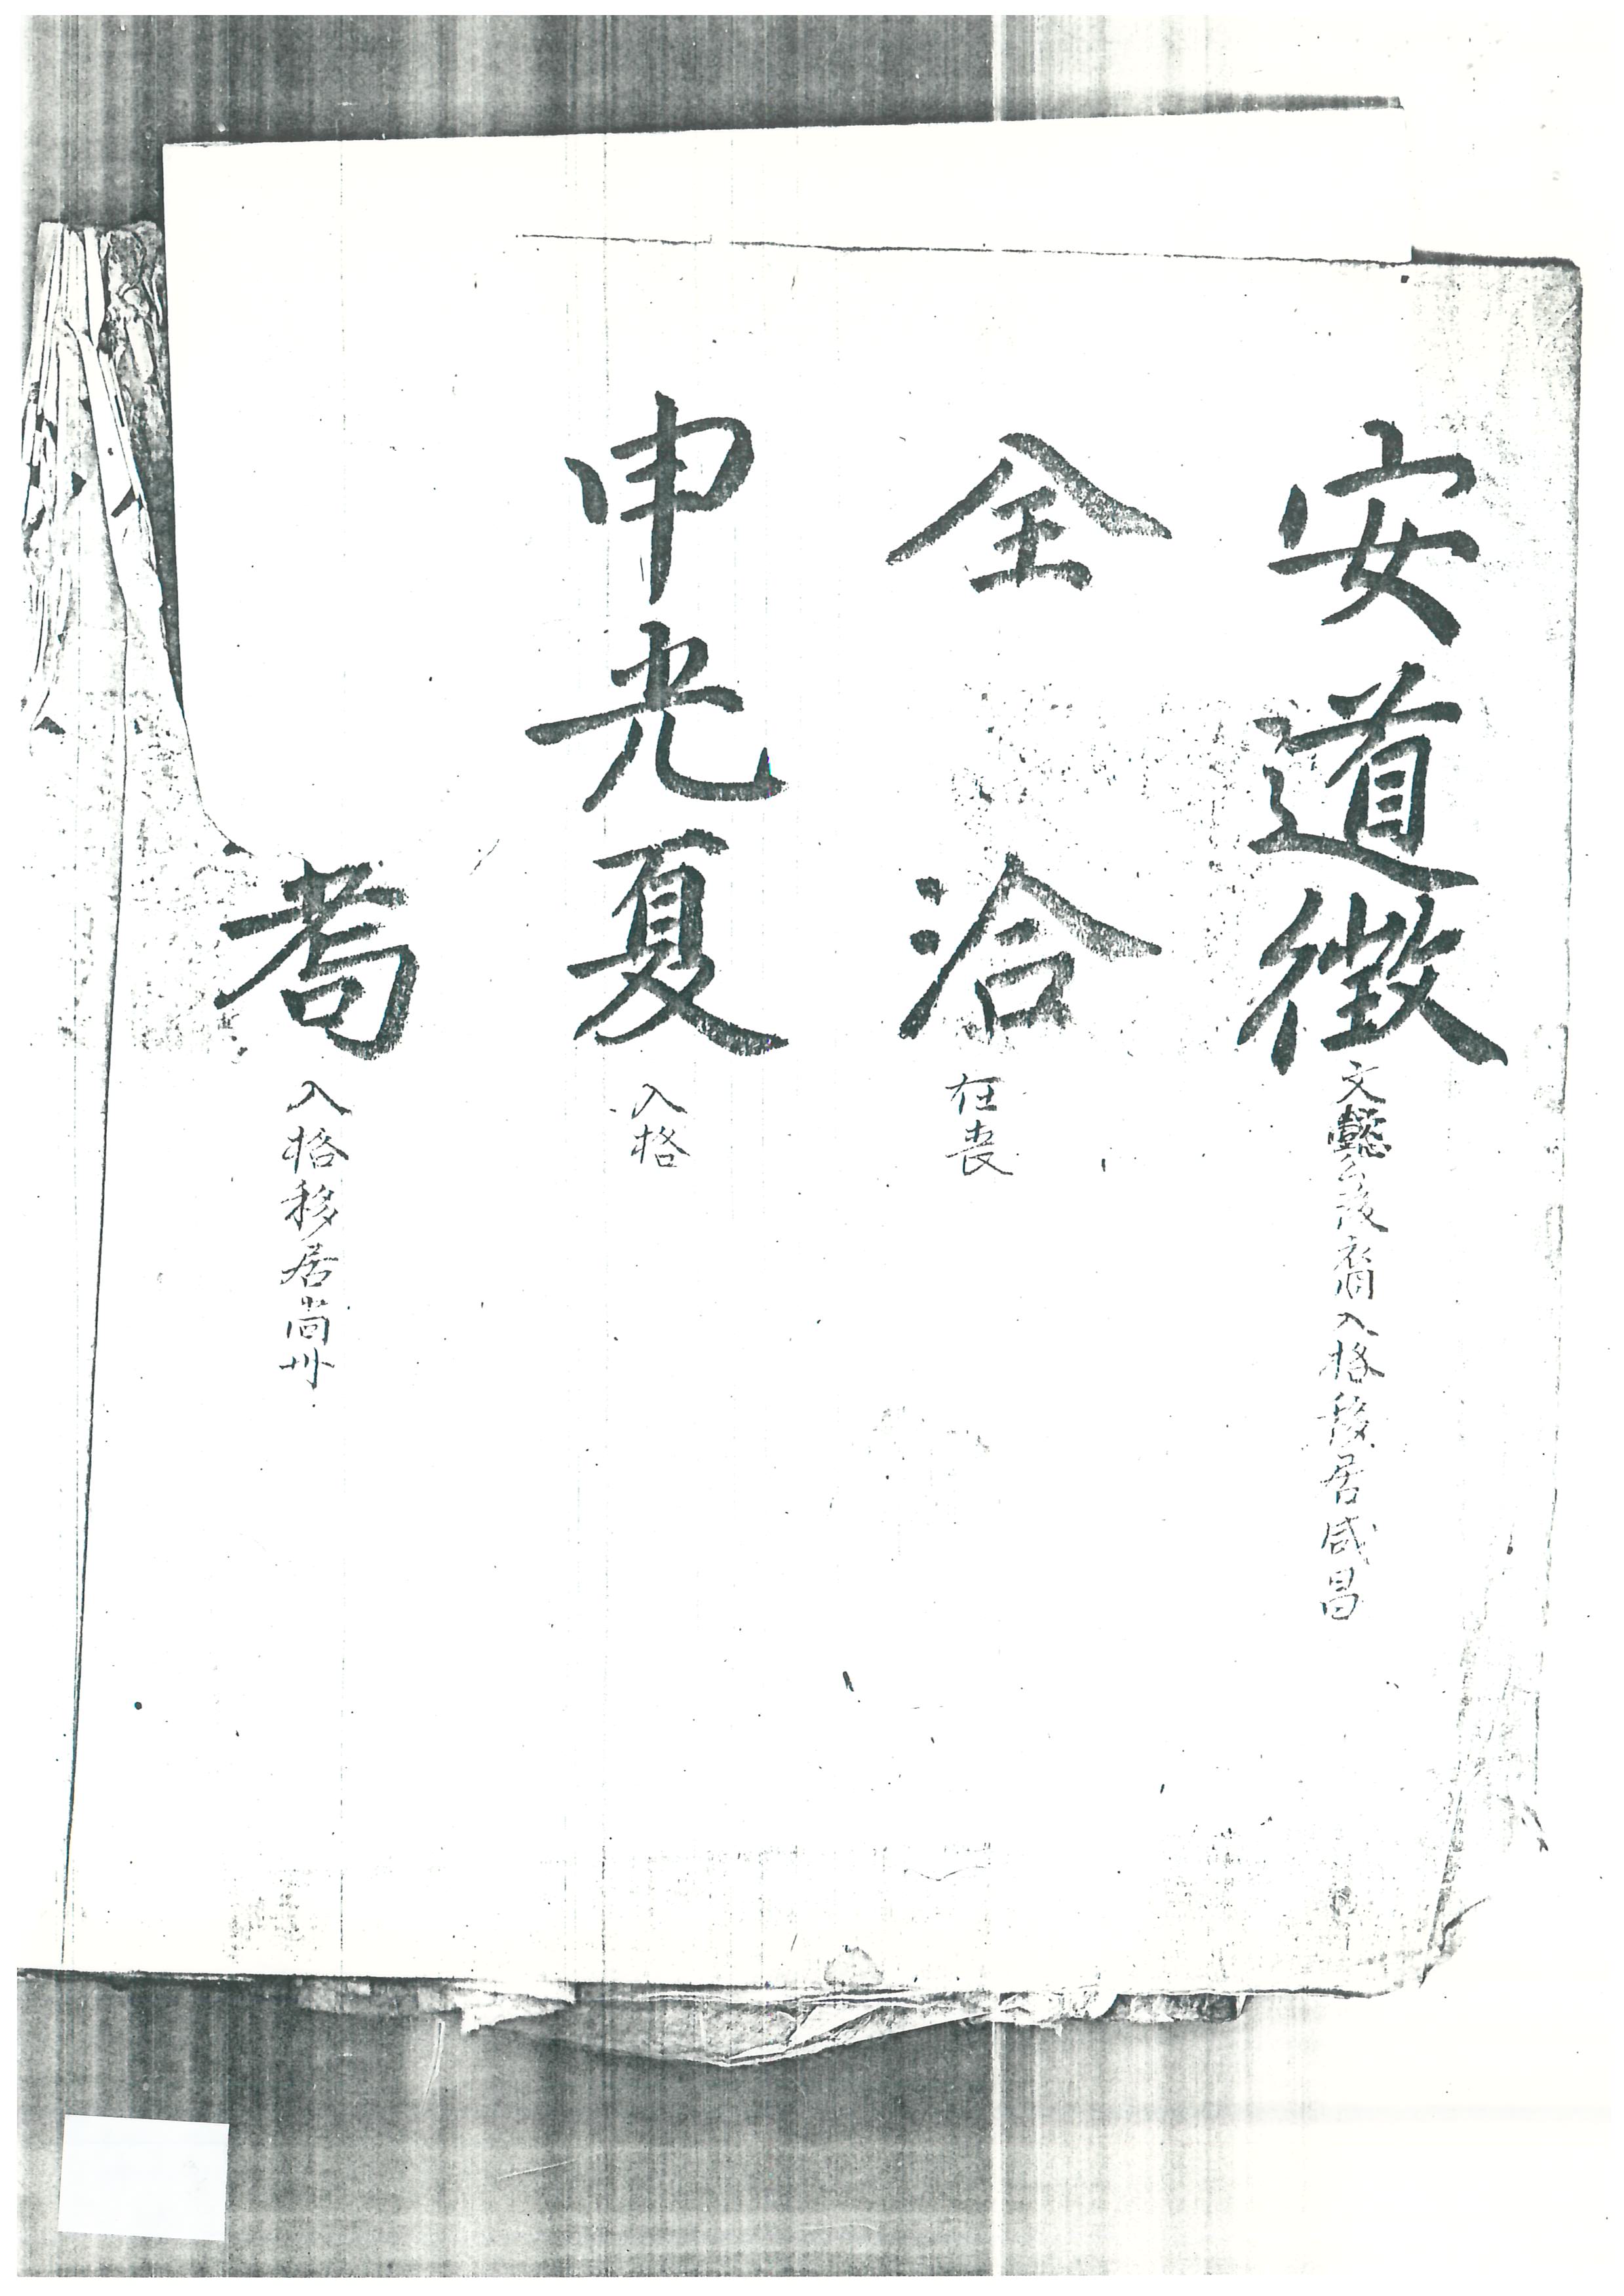 安道徵 文懿公後裔入格移居咸昌
全洽 在喪
申光夏 入格
耇 入格移居尙州